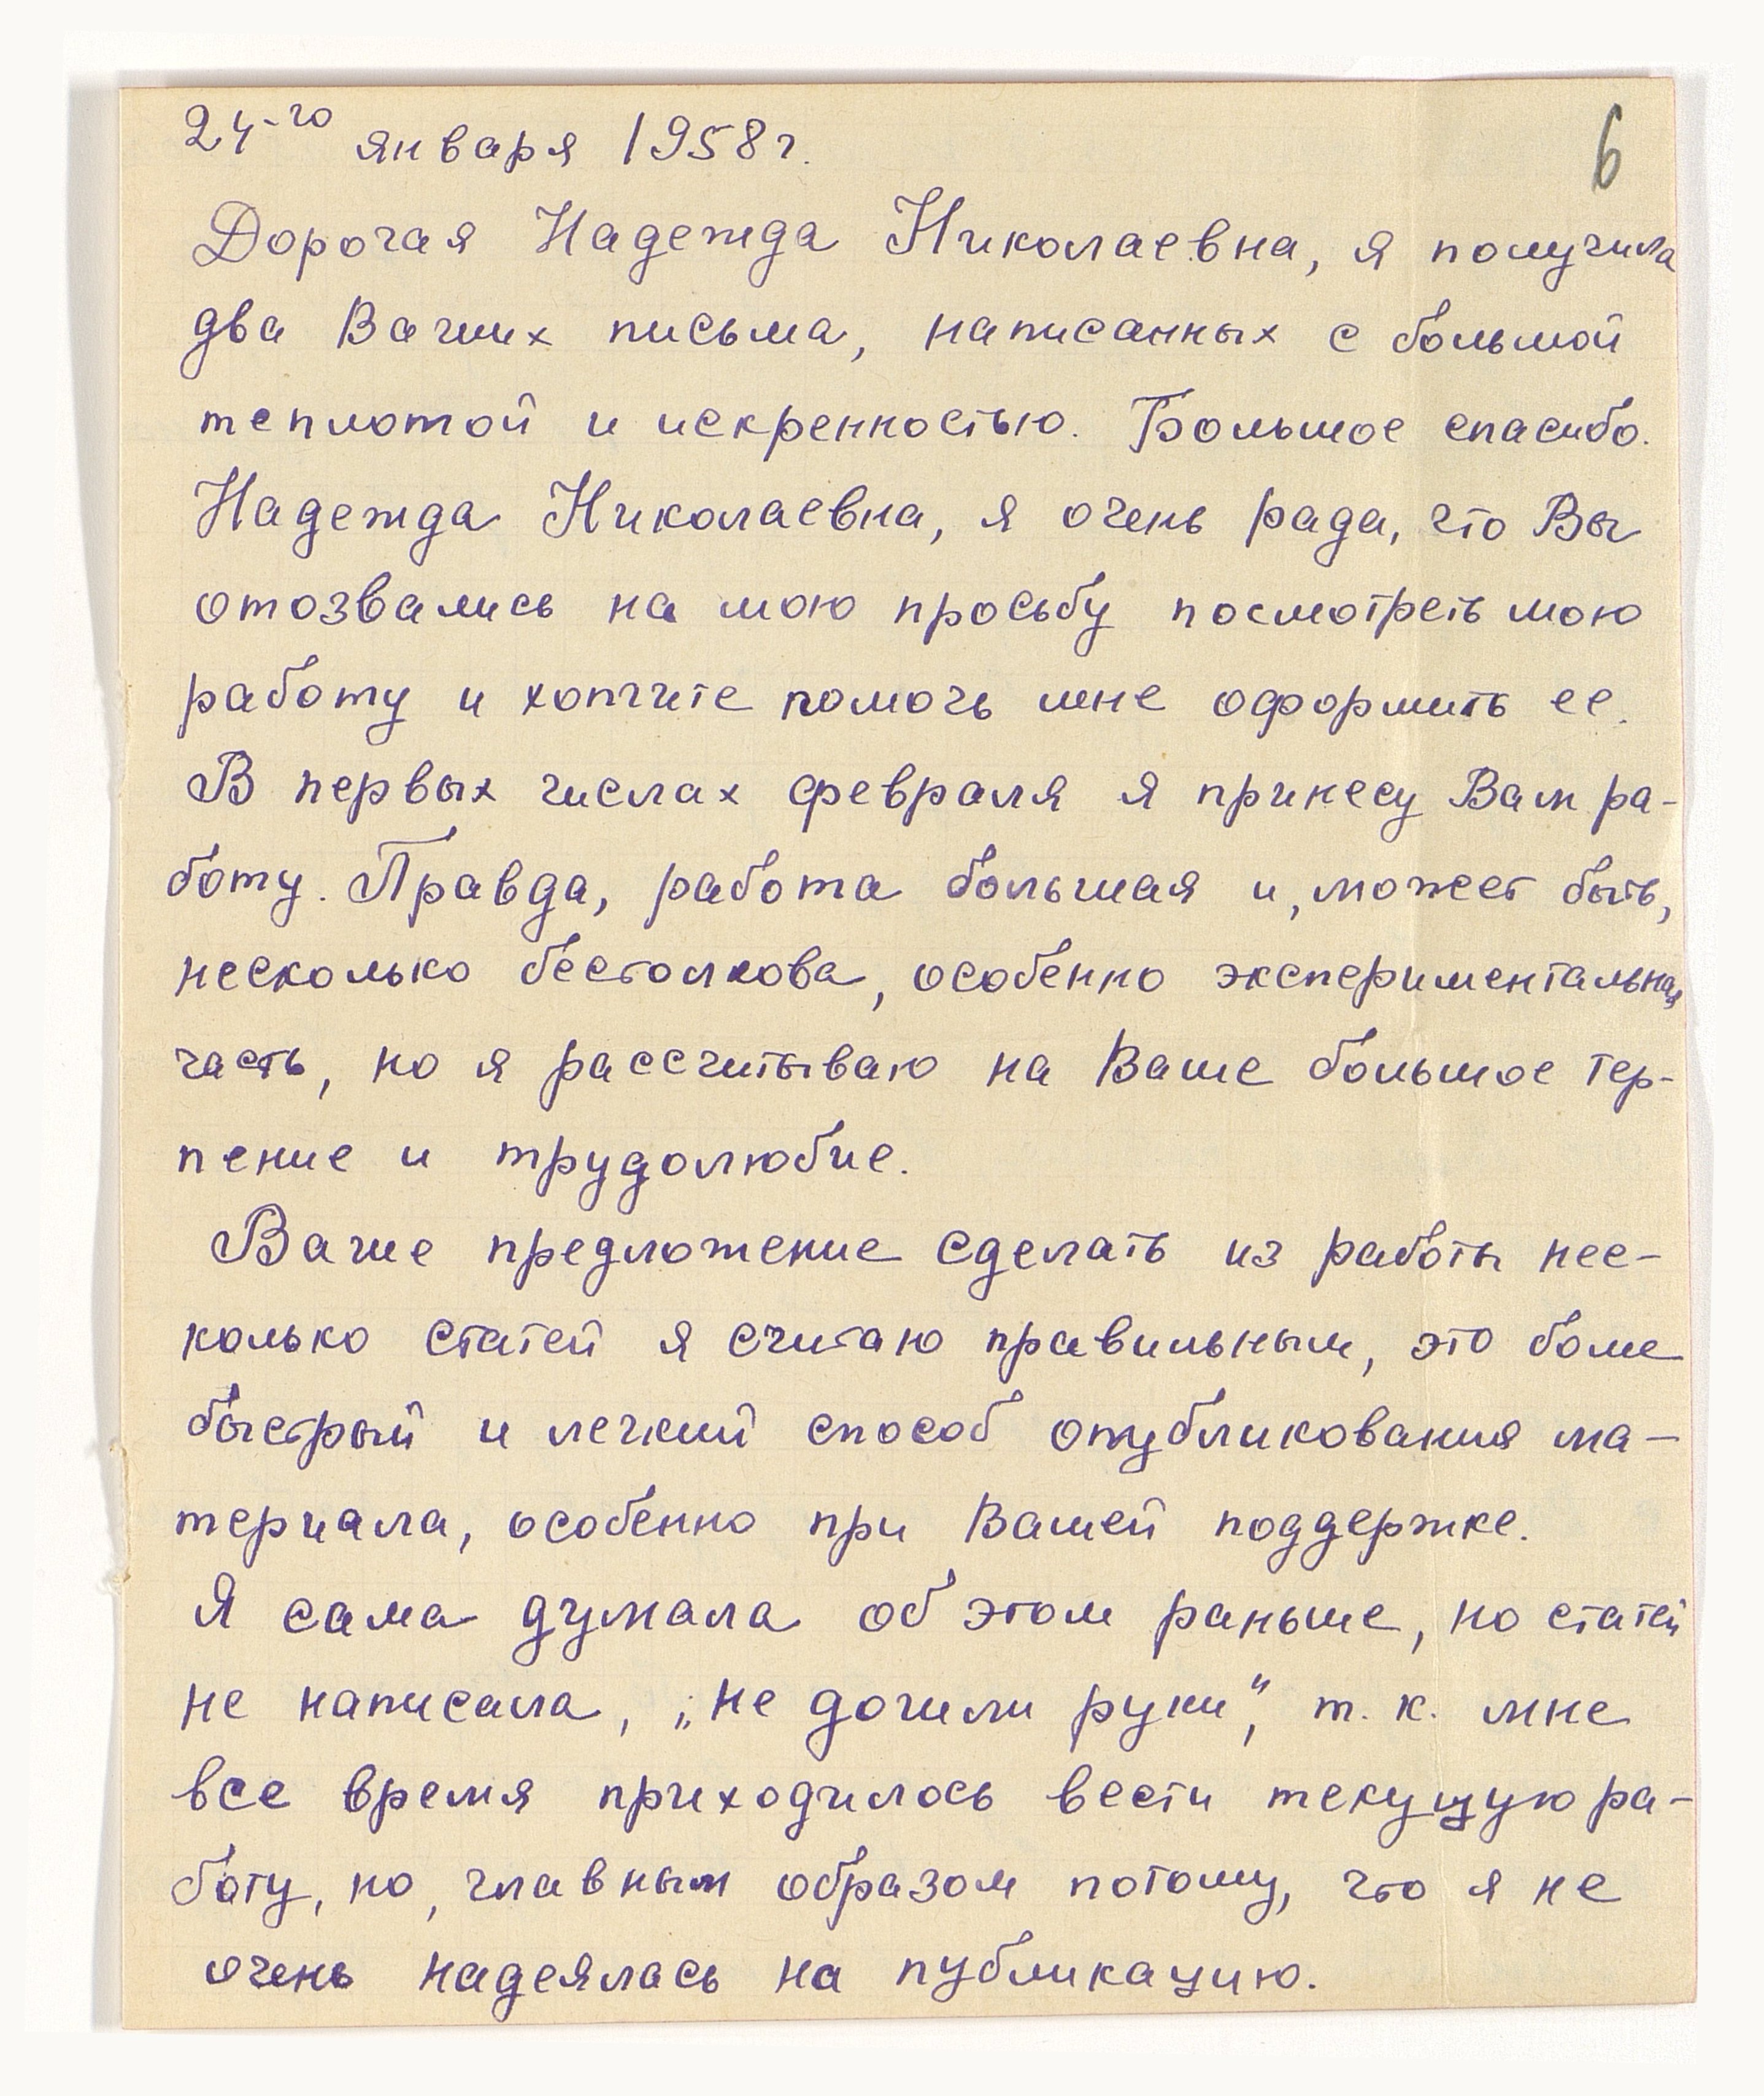 24-го января 1958 г.
6
Дорогая Надежда Николаевна, я получила
два Ваших письма, написанных с большой
теплотой и искренностью. Большое спасибо.
Надежда Николаевна, я очень рада, что Вы
отозвались на мою просьбу посмотреть мою
работу и хотите помочь мне оформить ее.
В первых числах февраля я принесу Вам ра-
боту. Правда, работа большая и, может быть,
несколько бестолкова, особенно экспериментальная
часть, но я рассчитываю на Ваше большое тер-
пение и трудолюбие.
Ваше предложение сделать из работы нес-
колько статей я считаю правильным, это более
быстрый и легкий способ опубликования ма-
териала, особенно при Вашей поддержке.
Я сама думала об этом раньше, но статей
не написала, „не дошли руки“, т. к. мне
все время приходилось вести текущую ра-
боту, но, главным образом потому, что я не
очень надеялась на публикацию.